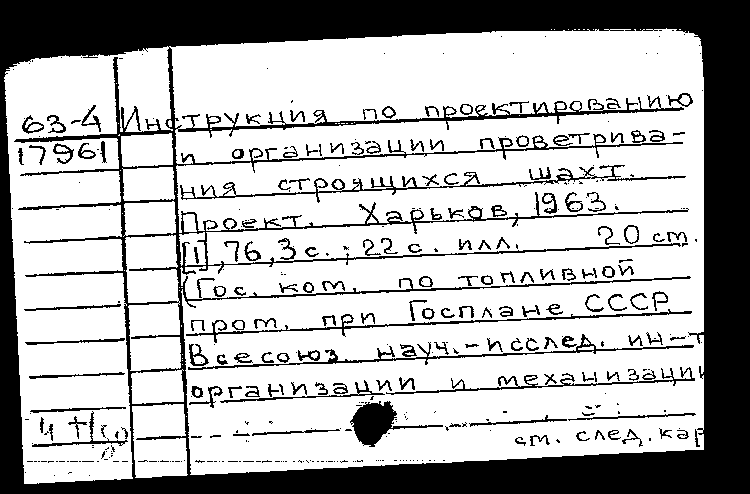 63-4 Инструкция по проектированию
17961 и организации проветрива-
ния строящихся шахт.
Проект. Харьков, 1963.
[1], 76, 3 с.; 22 с. илл. 20 см.
(Гос. ком. по топливной
пром. при Госплане СССР.
Всесоюз. науч.-исслед. ин-т
организации и механизации
см. след. кар